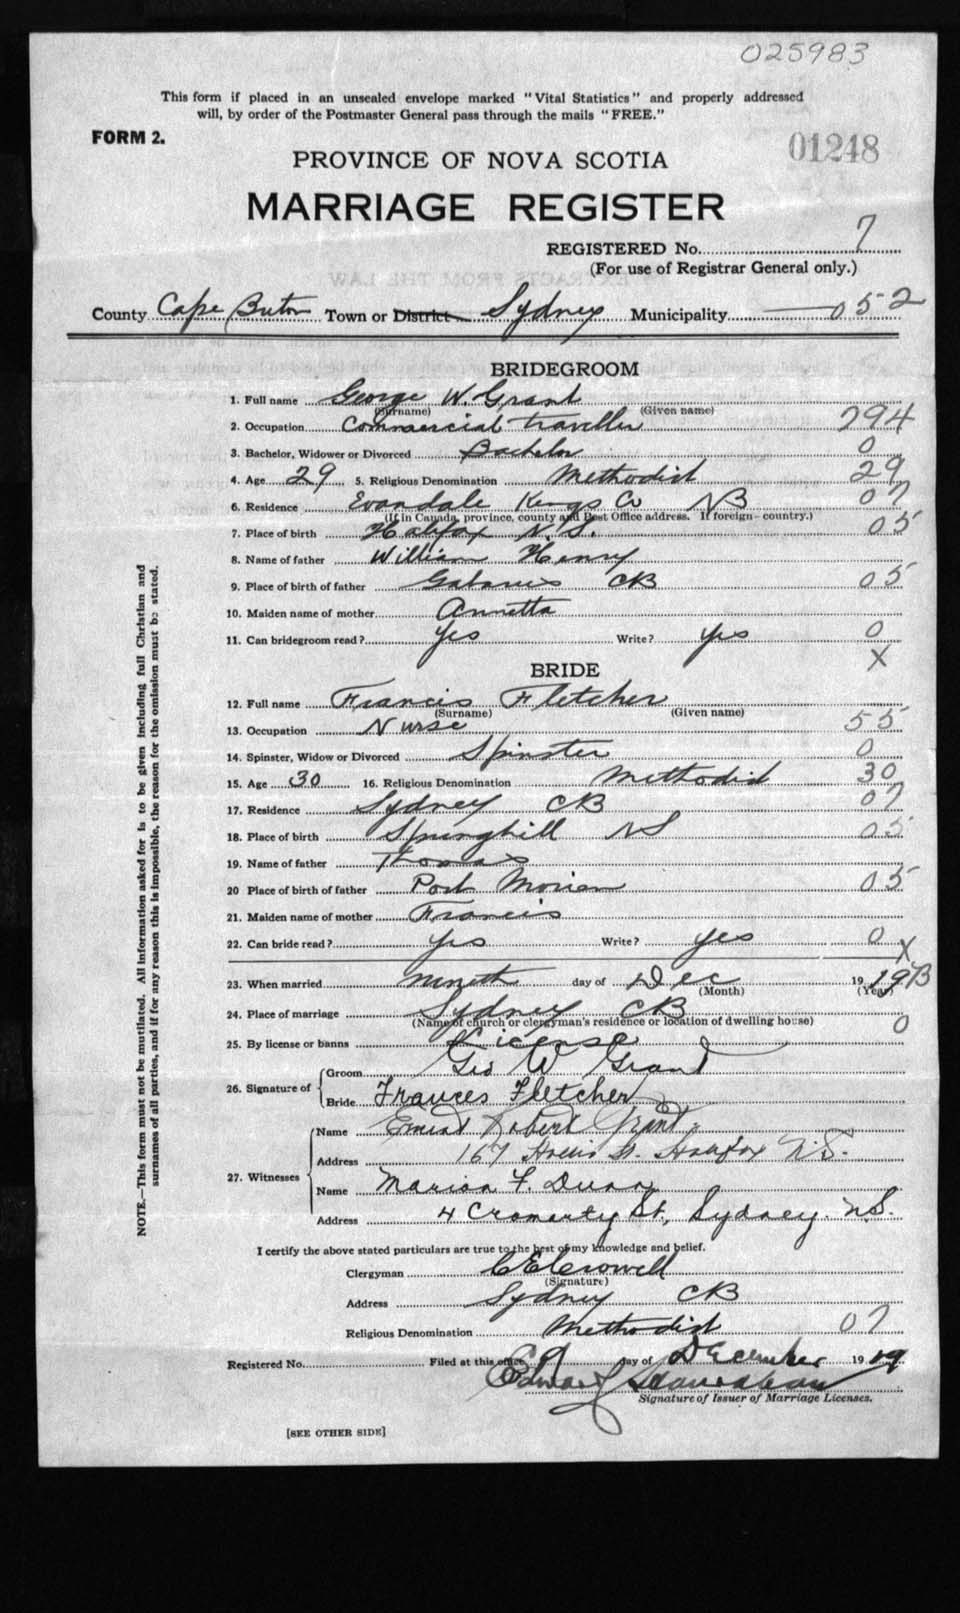 025983
This form if placed in an unsealed envelope marked "Vital Statistics" and properly addressed
will, by order of the Postmaster General pass through the mails "FREE."
FORM 2.
01248
PROVINCE OF NOVA SCOTIA
MARRIAGE REGISTER
REGISTERED No. 7
(For use of Registrar General only.)
County Cape Breton Town or District Sydney Municipality 052
BRIDEGROOM
1. Full name George W. Grant
(Surname) (Given name)
2. Occupation Commercial traveller 294
3. Bachelor, Widower or Divorced Bachelor 0
4. Age 29 5. Religious Denomination Methodist 29
6. Residence Evandale Kings Co NB 07
(If in Canada, province, county and Post Office address. If foreign—country.)
7. Place of birth Halifax N.S. 05
8. Name of father William Henry
9. Place of birth of father Gabarus CB 05
10. Maiden name of mother Annetta
11. Can bridegroom read? Yes Write? Yes 0
X
BRIDE
12. Full name Francis Fletcher
(Surname) (Given name)
13. Occupation Nurse 55
14. Spinster, Widow or Divorced Spinster 0
15. Age 30 16. Religious Denomination Methodist 30
17. Residence Sydney CB 07
18. Place of birth Springhill NS 05
19. Name of father Thomas
20 Place of birth of father Port Morien 05
21. Maiden name of mother Francis
22. Can bride read? Yes Write? yes 0
X
23. When married day of Dec 19 19 B
(Month) (Year)
24. Place of marriage Sydney CB
(Name of church or clergyman's residence or location of dwelling house) 0
25. By license or banns License
26. Signature of Groom Geo W Grant
Bride Frances Fletcher
27. Witnesses Name Robert Grant
Address 167 Hollis St. Halifax N.S.
Name Marion F. Dunn
Address 4 Cromarty St., Sydney. N.S.
I certify the above stated particulars are true to the best of my knowledge and belief.
Clergyman C E Crowell
(Signature)
Address Sydney CB
Religious Denomination Methodist 07
Registered No. Filed at this office 9 day of December 1919
Edward
Signature of Issuer of Marriage Licenses.
[SEE OTHER SIDE]
NOTE.—This form must not be mutilated. All information asked for is to be given including full Christian and
surnames of all parties, and if for any reason this is impossible, the reason for the omission must be stated.